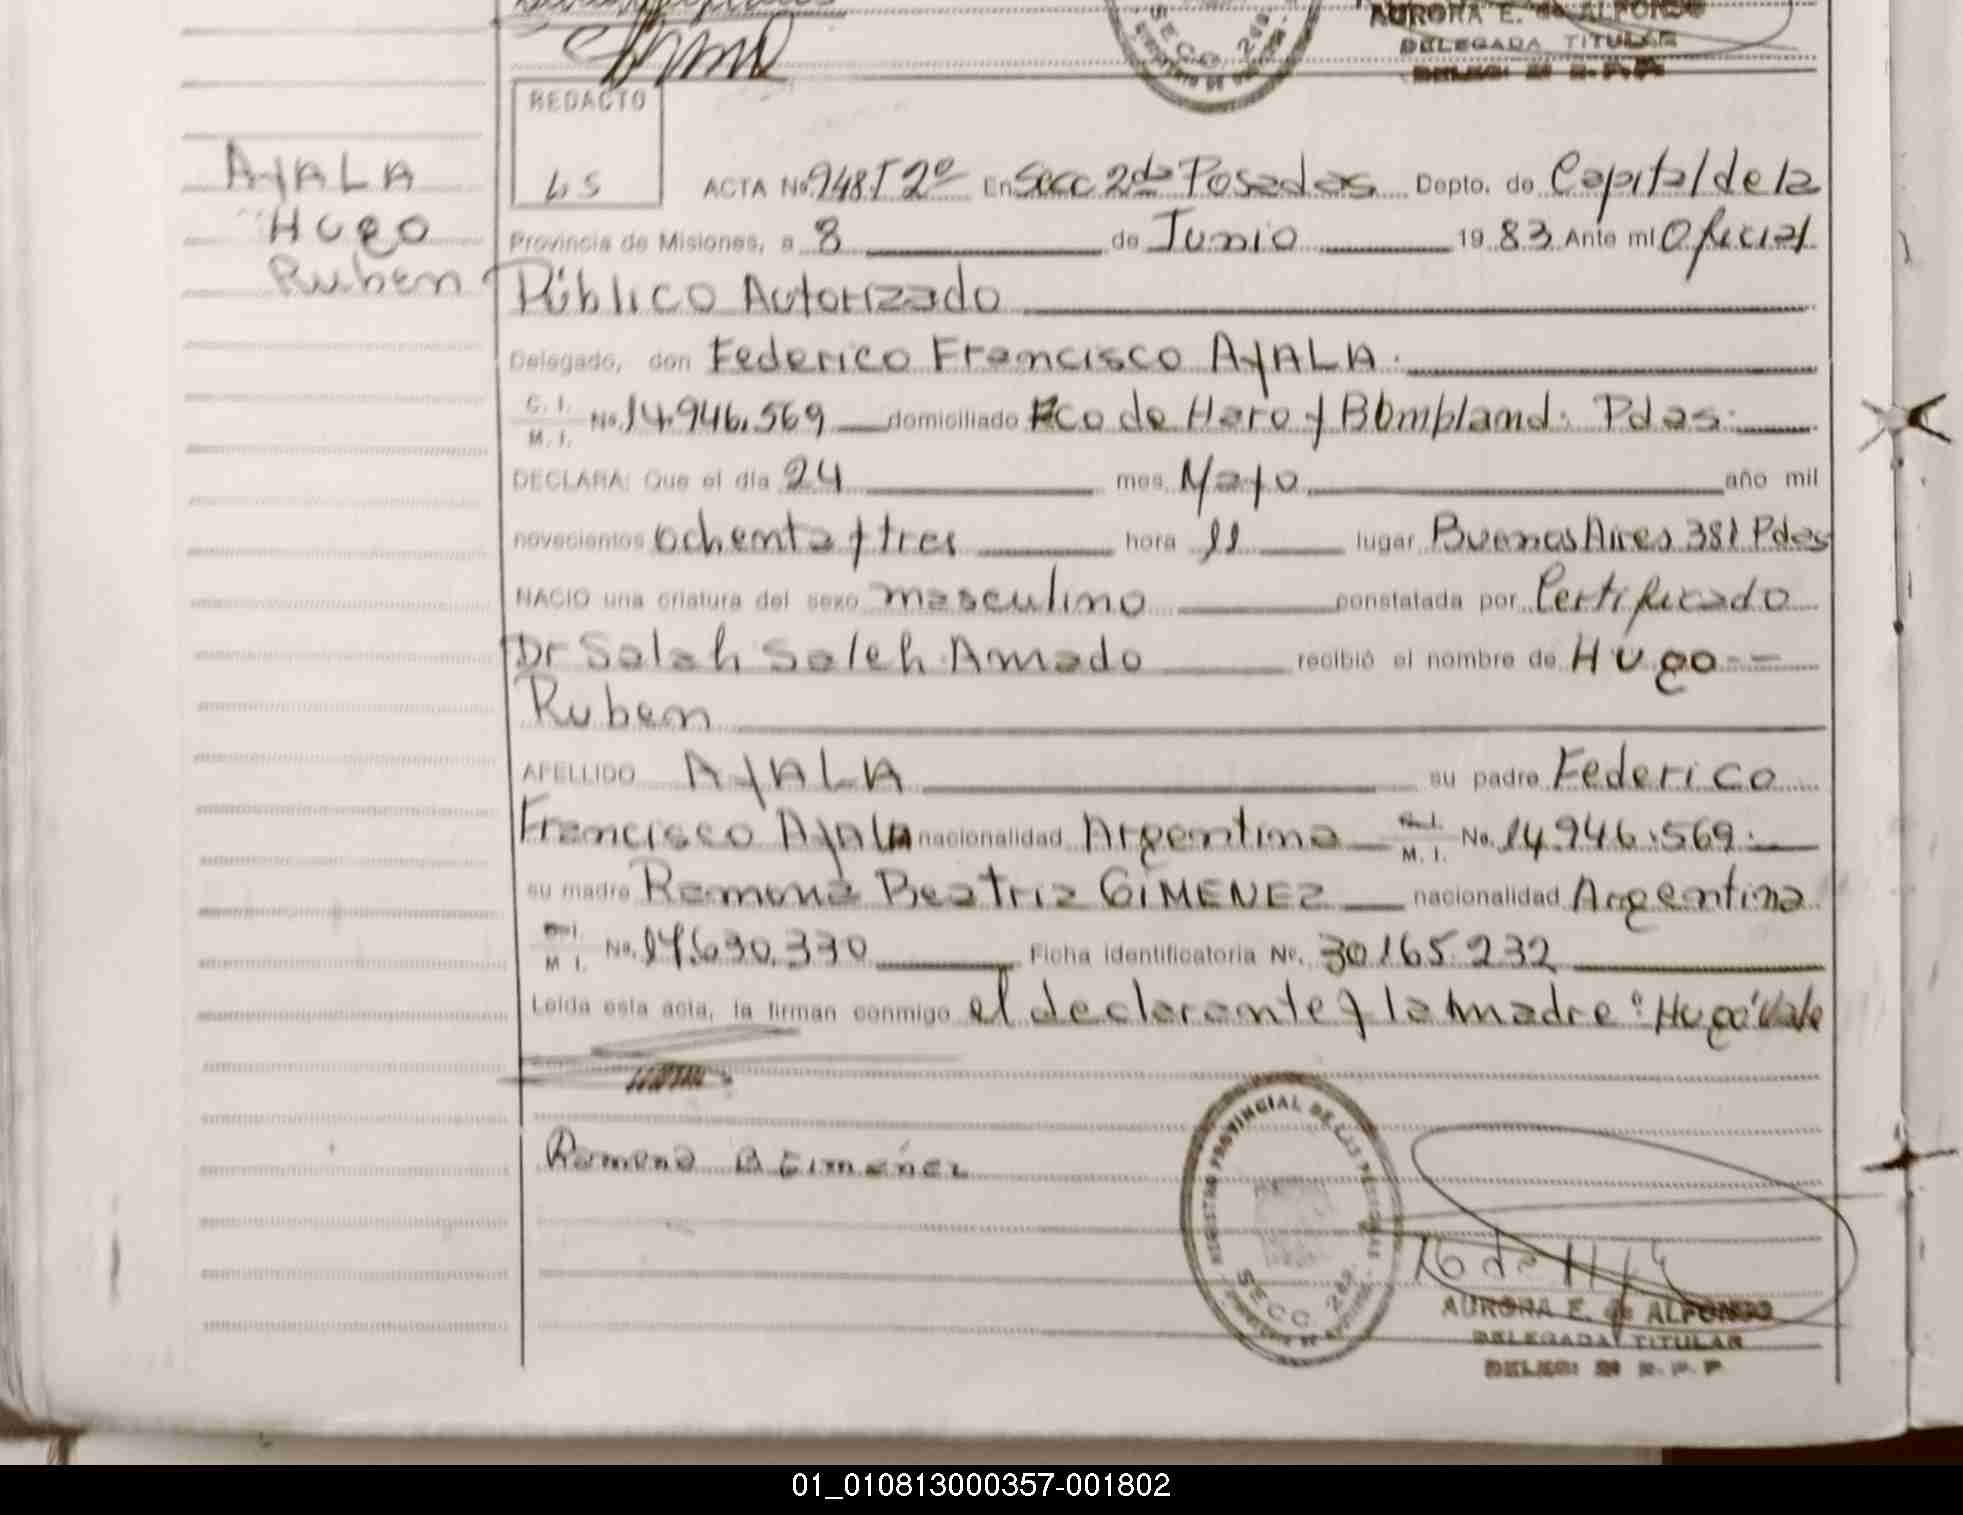 SECC. 2da.
AURORA E. de ALFONSO
DELEGADA TITULAR
REDACTO
LS
AYALA
Hugo
Ruben
ACTA No. 948 T 2º En Secc 2da Posadas Depto. de Capital de la
Provincia de Misiones, a 8 de Junio 1983 Ante mí Oficial
Público Autorizado
Delegado, don Federico Francisco AYALA.
C. I.
M. I. No. 14.946.569 domiciliado Fco de Haro y Bompland. Pdas.
DECLARA: Que el día 24 mes Mayo año mil
novecientos ochenta y tres hora 11 lugar Buenos Aires 381 Pdas
NACIO una criatura del sexo masculino constatada por Certificado
Dr Salah Saleh Amado recibió el nombre de Hugo --
Ruben
APELLIDO AYALA su padre Federico
Francisco Ayala nacionalidad Argentina M. I. No. 14.946.569.
su madre Ramona Beatriz GIMENEZ nacionalidad Argentina
M. I. No. 17.630.330 Ficha identificatoria Nº. 30165.232
Leída esta acta, la firman conmigo el declarante y la madre "Hugo" Vale
Ramona B Gimenez
REGISTRO PROVINCIAL DE LAS PERSONAS
SECC 2da.
AURORA E. de ALFONSO
DELEGADA TITULAR
01_010813000357-001802